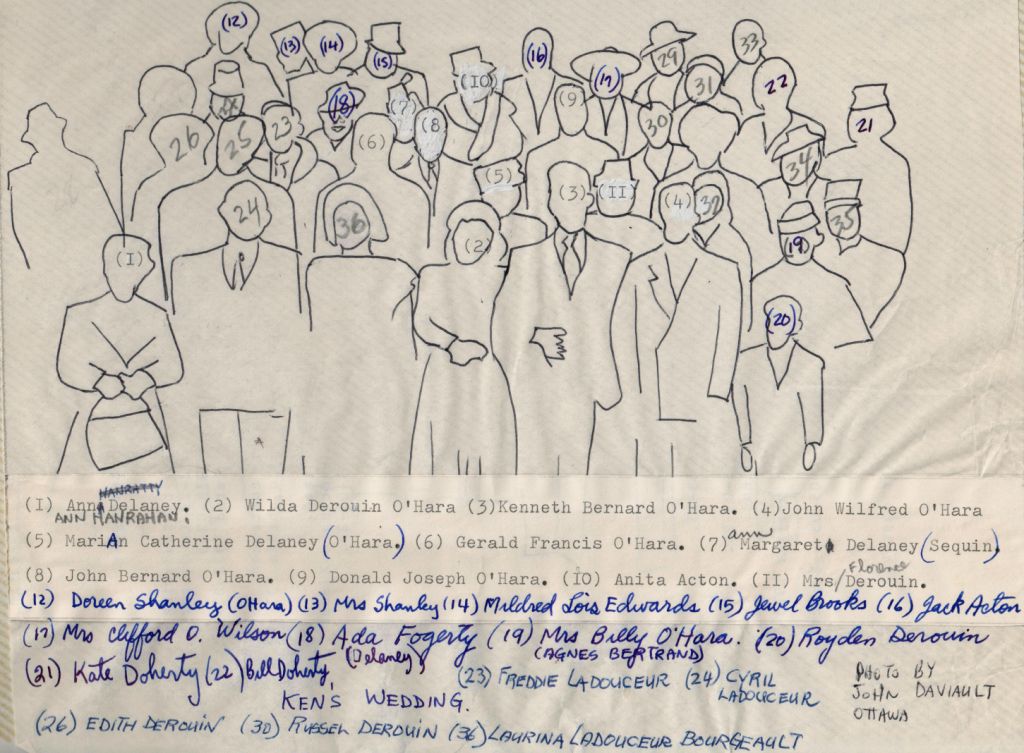 (12)
(13)
(14)
(15)
(16)
(17)
29
33
(10)
31
22
(9)
(18)
(7)
28
23
(8)
30
21
(6)
25
26
15
34
(5)
(3)
(II)
(4)
32
24
36
35
(2)
(I)
19
(20)
HANRATTY
(I) Ann Delaney. (2) Wilda Derouin O'Hara (3)Kenneth Bernard O'Hara. (4)John Wilfred O'Hara
ANN HANRAHAN.
(5) MariAn Catherine Delaney (O'Hara.) (6) Gerald Francis O'Hara. (7) ann Margaret Delaney (Sequin)
(8) John Bernard O'Hara. (9) Donald Joseph O'Hara. (IO) Anita Acton. (II) Mrs/Florence Derouin.
(12) Doreen Shanley (OHara) (13) Mrs Shanley (14) Mildred Lois Edwards (15) Jewel Brooks (16) Jack Acton
(17) Mrs Clifford O. Wilson (18) Ada Fogerty (19) Mrs Billy O'Hara. (20) Royden Derouin
(Delaney) (AGNES BERTRAND)
(21) Kate Doherty (22) Bill Doherty, (23) FREDDIE LADOUCEUR (24) CYRIL LADOUCEUR
KEN'S WEDDING.
PHOTO BY
JOHN DAVIAULT
OTTAWA
(26) EDITH DEROUIN (30) RUSSEL DEROUIN (36) LAURINA LADOUCEUR BOURGEAULT